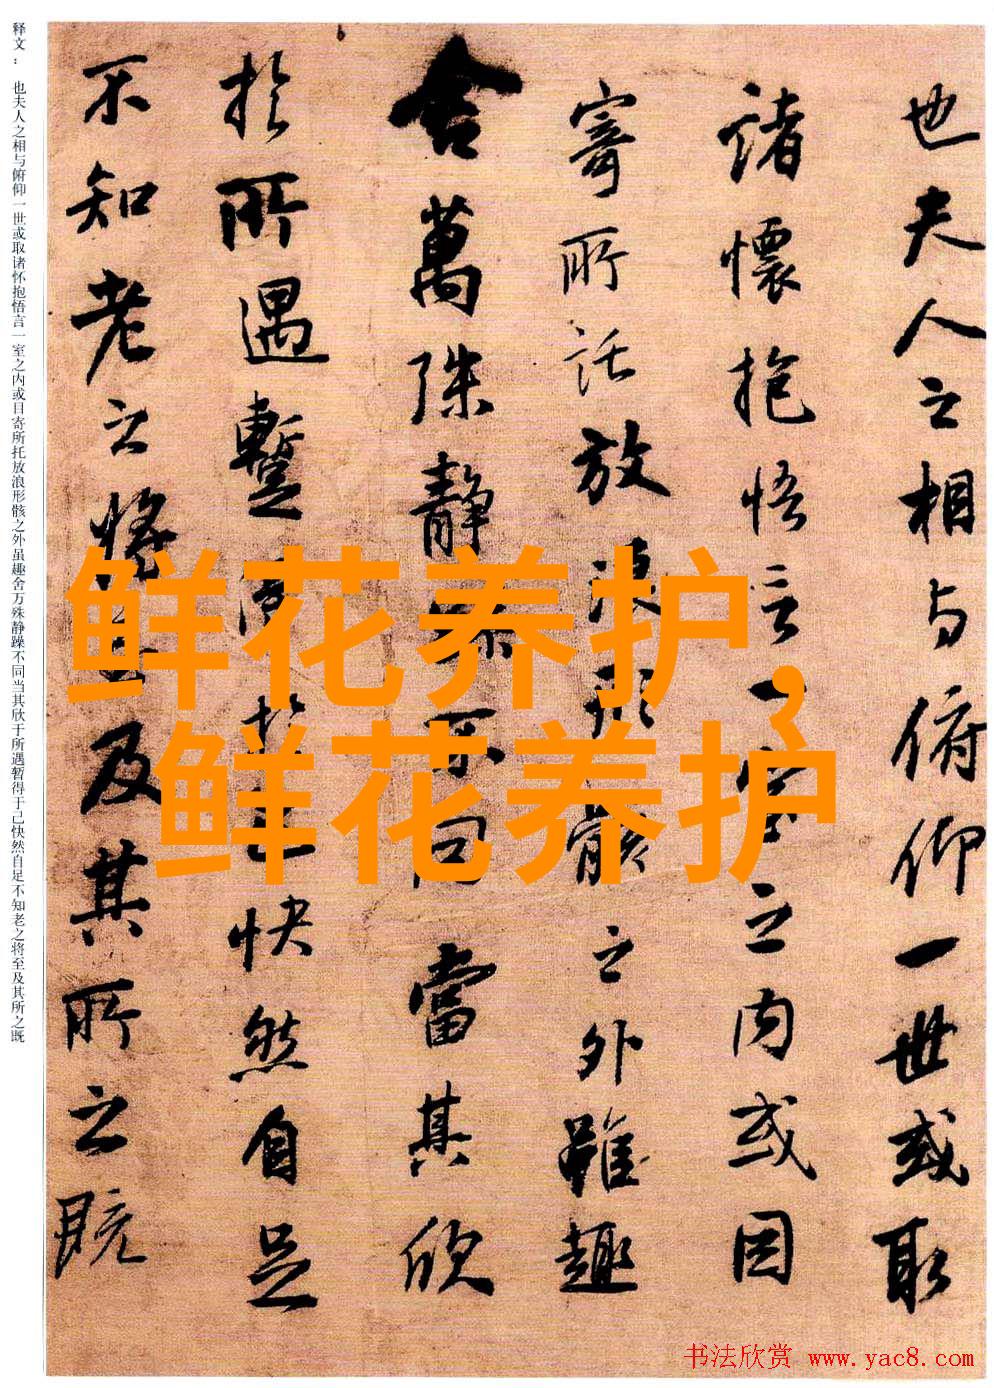 也夫人之相与俯仰一世或取
諸懷抱悟言一室之内或因
寄所託放浪形骸之外雖趣
舍萬殊靜躁不同當其欣
於所遇蹔得於己快然自足
不知老之將至及其所之既
释文： 也夫人之相与俯仰一世或取诸怀抱悟言一室之内或目寄所托放浪形骸之外虽趣舍万殊静躁不同当其欣于所遇暂得于己快然自足不知老之将至及其所之既
鲜花养护，
鲜花养护
书法欣赏 www.yac8.com